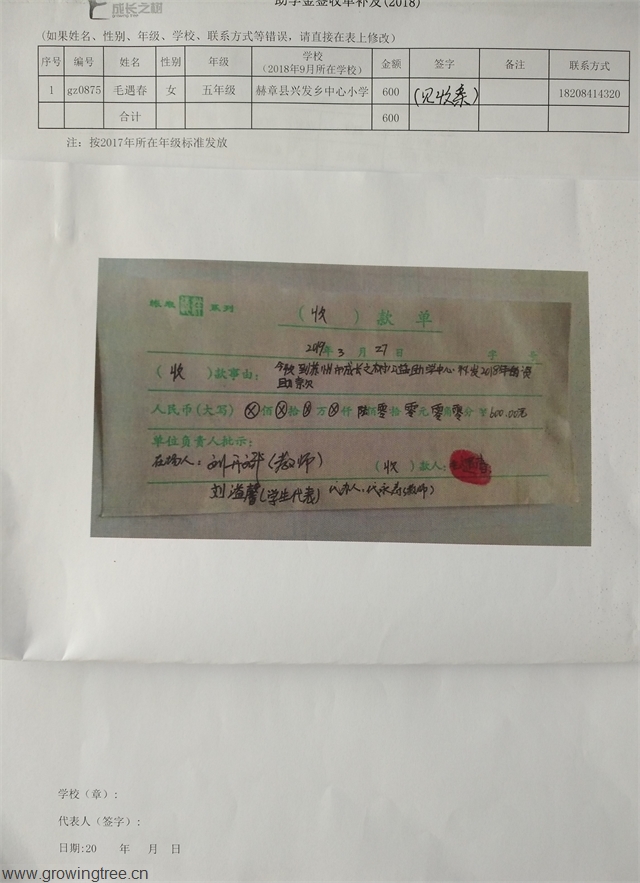 成长之树
助学金签收单补发(2018)
(如果姓名、性别、年级、学校、联系方式等错误，请直接在表上修改)
序号 编号 姓名 性别 年级 学校 (2018年9月所在学校) 金额 签字 备注 联系方式
1 gz0875 毛遇春 女 五年级 赫章县兴发乡中心小学 600 (见收条) 18208414320
合计 600
注：按2017年所在年级标准发放
系列
(收)款单
2019年3月27日 字 号
(收)款事由：今收到苏州市成长之树公益助学中心补发2018年
人民币(大写) ⊗佰⊗拾⊗万⊗仟陆佰零拾零元零角零分 ¥600.00元
单位负责人批示：
在场人：(教师) (收)款人：
刘溢馨(学生代表) 代办人：(教师)
学校（章）：
代表人（签字）：
日期:20 年 月 日
www.growingtree.cn